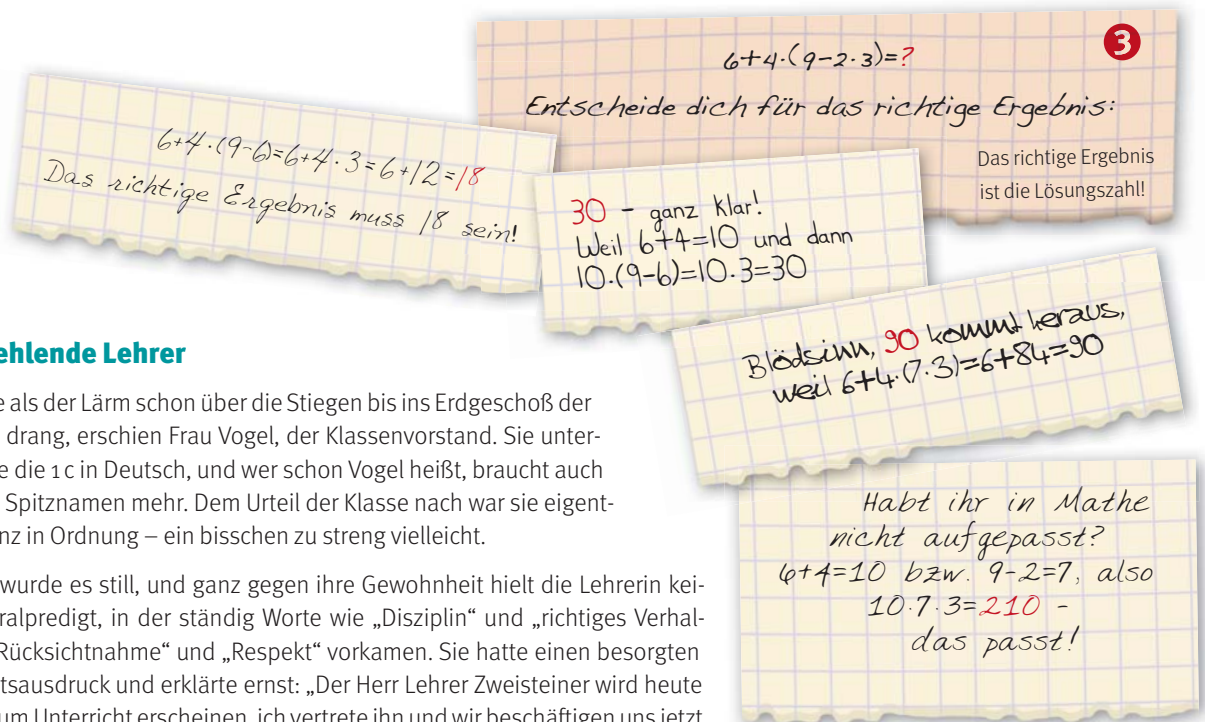 6+4·(9-2·3)=?
3
Entscheide dich für das richtige Ergebnis:
Das richtige Ergebnis
ist die Lösungszahl!
6+4·(9-6)=6+4·3=6+12=18
Das richtige Ergebnis muss 18 sein!
30 - ganz klar!
Weil 6+4=10 und dann
10·(9-6)=10·3=30
Blödsinn, 90 kommt heraus,
weil 6+4·(7·3)=6+84=90
Habt ihr in Mathe
nicht aufgepasst?
6+4=10 bzw. 9-2=7, also
10·7·3=210 -
das passt!
ehlende Lehrer
e als der Lärm schon über die Stiegen bis ins Erdgeschoß der
drang, erschien Frau Vogel, der Klassenvorstand. Sie unter-
e die 1 c in Deutsch, und wer schon Vogel heißt, braucht auch
Spitznamen mehr. Dem Urteil der Klasse nach war sie eigent-
nz in Ordnung – ein bisschen zu streng vielleicht.
wurde es still, und ganz gegen ihre Gewohnheit hielt die Lehrerin kei-
ralpredigt, in der ständig Worte wie „Disziplin“ und „richtiges Verhal-
Rücksichtnahme“ und „Respekt“ vorkamen. Sie hatte einen besorgten
tsausdruck und erklärte ernst: „Der Herr Lehrer Zweisteiner wird heute
um Unterricht erscheinen, ich vertrete ihn und wir beschäftigen uns jetzt